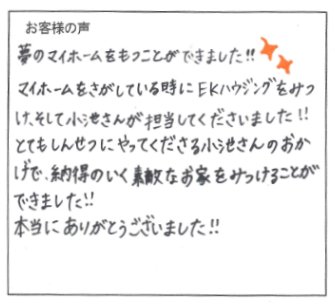 お客様の声
夢のマイホームをもつことができました!!
マイホームをさがしている時にEKハウジングをみつ
け、そして小池さんが担当してくださいました!!
とてもしんせつにやってくださる小池さんのおか
げで、納得のいく素敵なお家をみつけることが
できました!!
本当にありがとうございました!!